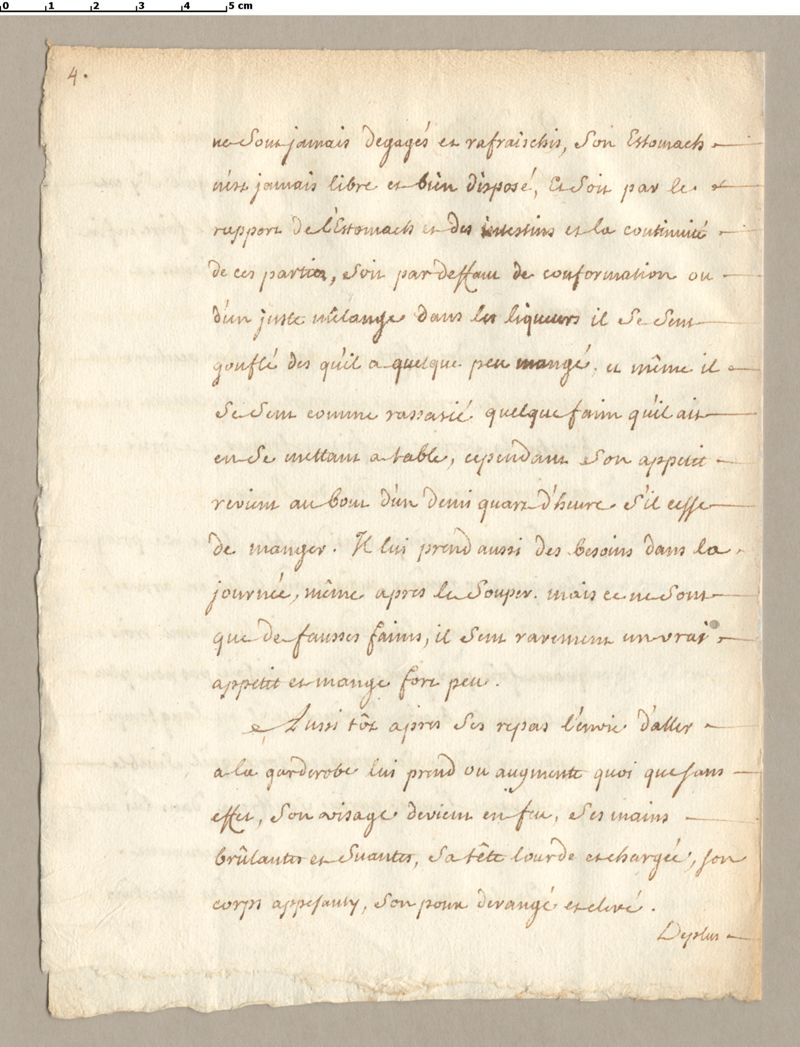 0 1 2 3 4 5 cm
4.
ne sont jamais degagés et rafraischis, son Estomach
n'est jamais libre et bien disposé, Et soit par le
rapport de l'Estomach et des intestins et la continuité
de ces parties, soit par deffaut de conformation ou
d'un juste mêlange dans les liqueurs il se sent
gouflé des qu'il a quelque peu mangé, et même il
se sent comme rassasié quelque faim qu'il ait
en se mettant a table, cependant son appetit
revient au bout d'un demi quart d'heure s'il cesse
de manger. Il lui prend aussi des besoins dans la
journée, même apres le souper. mais ce ne sont
que de fausses faims, il sent rarement un vrai
appetit et mange fort peu.
Aussi tôt apres ses repas l'envie d'aller
a la garderobe lui prend ou augmente quoi que sans
effet, son visage devient en feu, ses mains
brûlantes et suantes, sa tête lourde et chargée, son
corps appesanty, son poux derangé et elevé.
Deplus